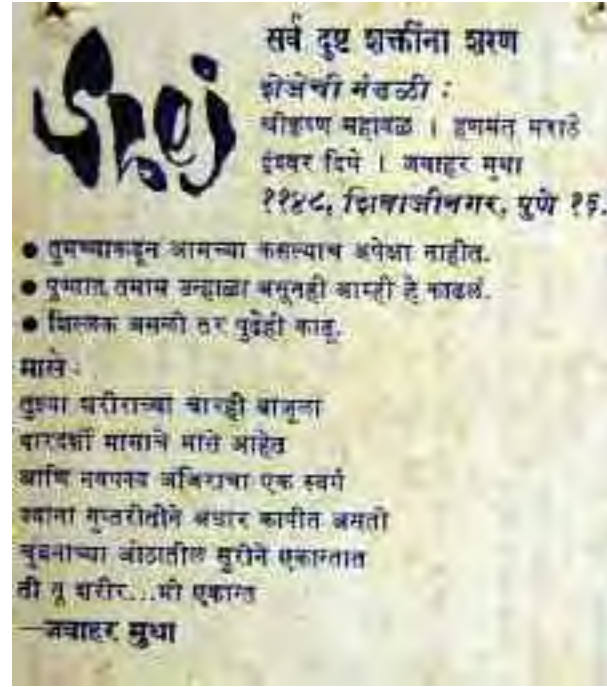 Shej
सर्व दुष्ट शक्तींना शरण
शेजेची मंडळी :
श्रीकृष्ण महाबळ । हणमंत मराठे
ईश्वर दिपे । जवाहर मुथा
११४८, शिवाजीनगर, पुणे १६.
● तुमच्याकडून आमच्या कसल्याच अपेक्षा नाहीत.
● पुण्यात तमाम उन्हाळा असूनही आम्ही हे काढलं.
● शिल्लक असलो तर पुढेही काढू.
मासे :
तुझ्या शरीराच्या चारही बाजूला
पारदर्शी मासाचे मासे आहेत
आणि नवपक्व अंजिराचा एक स्वर्ग
गुप्तरीतीने अंधार कापीत असतो
चुंबनाच्या ओठातील सुरीने एकान्तात
ती तू शरीर...मी एकान्त
—जवाहर मुथा